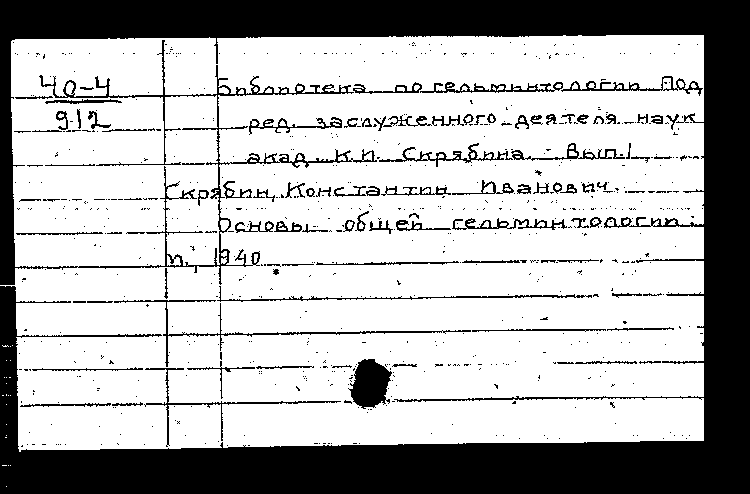 40-4
912
Библиотека по гельминтологии Под
ред. заслуженного деятеля наук
акад. К.И. Скрябина. Вып. 1
Скрябин, Константин Иванович.
Основы общей гельминтологии.
п., 1940